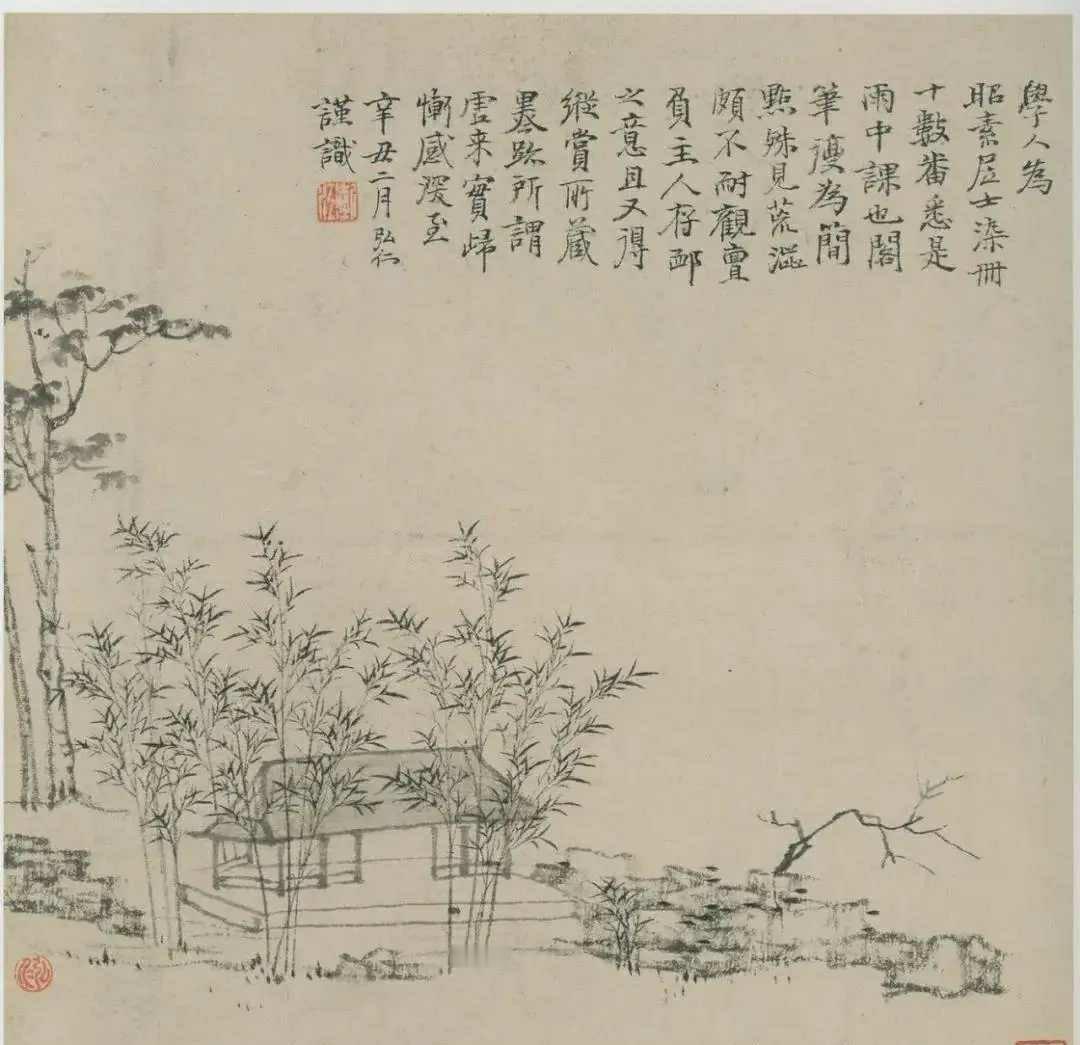 學人為
昭素居士染冊
十數番悉是
雨中課也閣
筆復為簡
點殊見荒澁
頗不耐觀實
負主人存邺
之意且又得
縱賞所藏
墨跡所謂
虛来實歸
慚感深至
辛丑二月弘仁
謹識